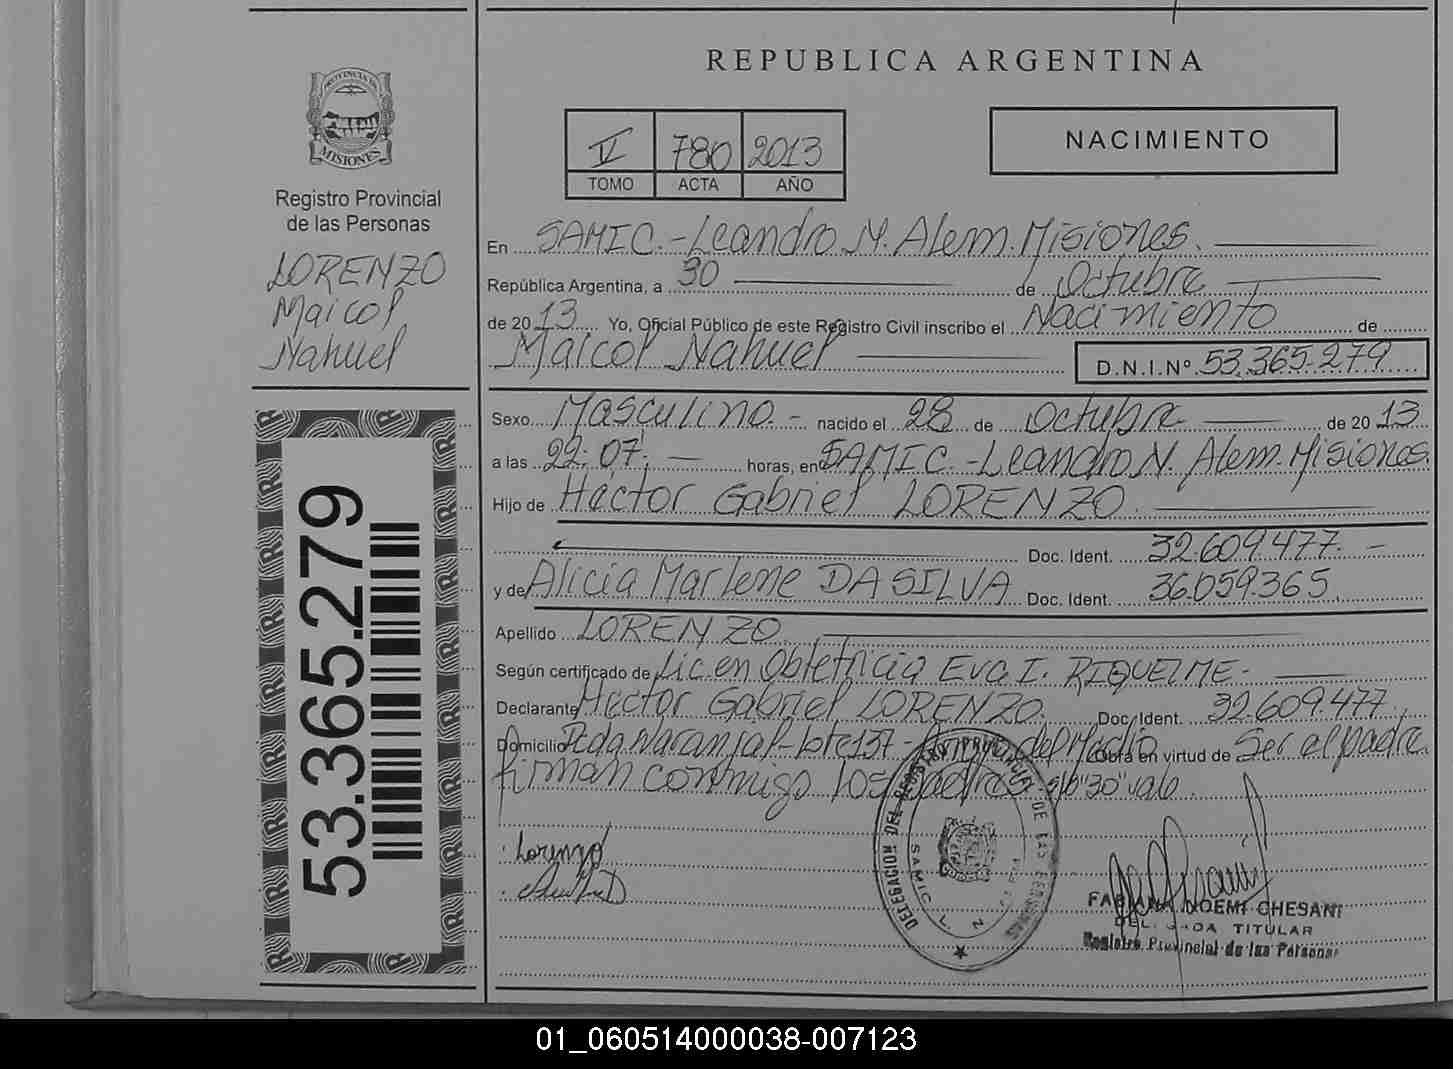 REPUBLICA ARGENTINA
PROVINCIA DE
MISIONES
Registro Provincial
de las Personas
LORENZO
Maicol
Nahuel
53.365.279
IV 780 2013
TOMO ACTA AÑO
NACIMIENTO
En SAMIC.-Leandro N. Alem. Misiones.
República Argentina, a 30 de Octubre
de 2013 Yo, Oficial Público de este Registro Civil inscribo el Nacimiento de
Maicol Nahuel D.N.I.Nº 53.365.279
Sexo Masculino.- nacido el 28 de Octubre de 2013
a las 22:07; horas, en SAMIC.-Leandro N. Alem. Misiones.
Hijo de Hector Gabriel LORENZO.
Doc. Ident. 32.609.477.-
y de Alicia Marlene DA SILVA Doc. Ident. 36.059.365.
Apellido LORENZO.
Según certificado de Lic. en Obtetricia Eva I. RIQUELME-
Declarante Hector Gabriel LORENZO. Doc. Ident. 32.609.477.
Domicilio Pcda Naranjal-lote 137- del Medio Obra en virtud de Ser el padre.
firman conmigo los padres s/b "30" vale.
Lorenzo
DELEGACION DEL REGISTRO PROVINCIAL DE LAS PERSONAS
SAMIC L. N.
FABIANA NOEMI CHESANI
DELEGADA TITULAR
Registro Provincial de las Personas
01_060514000038-007123